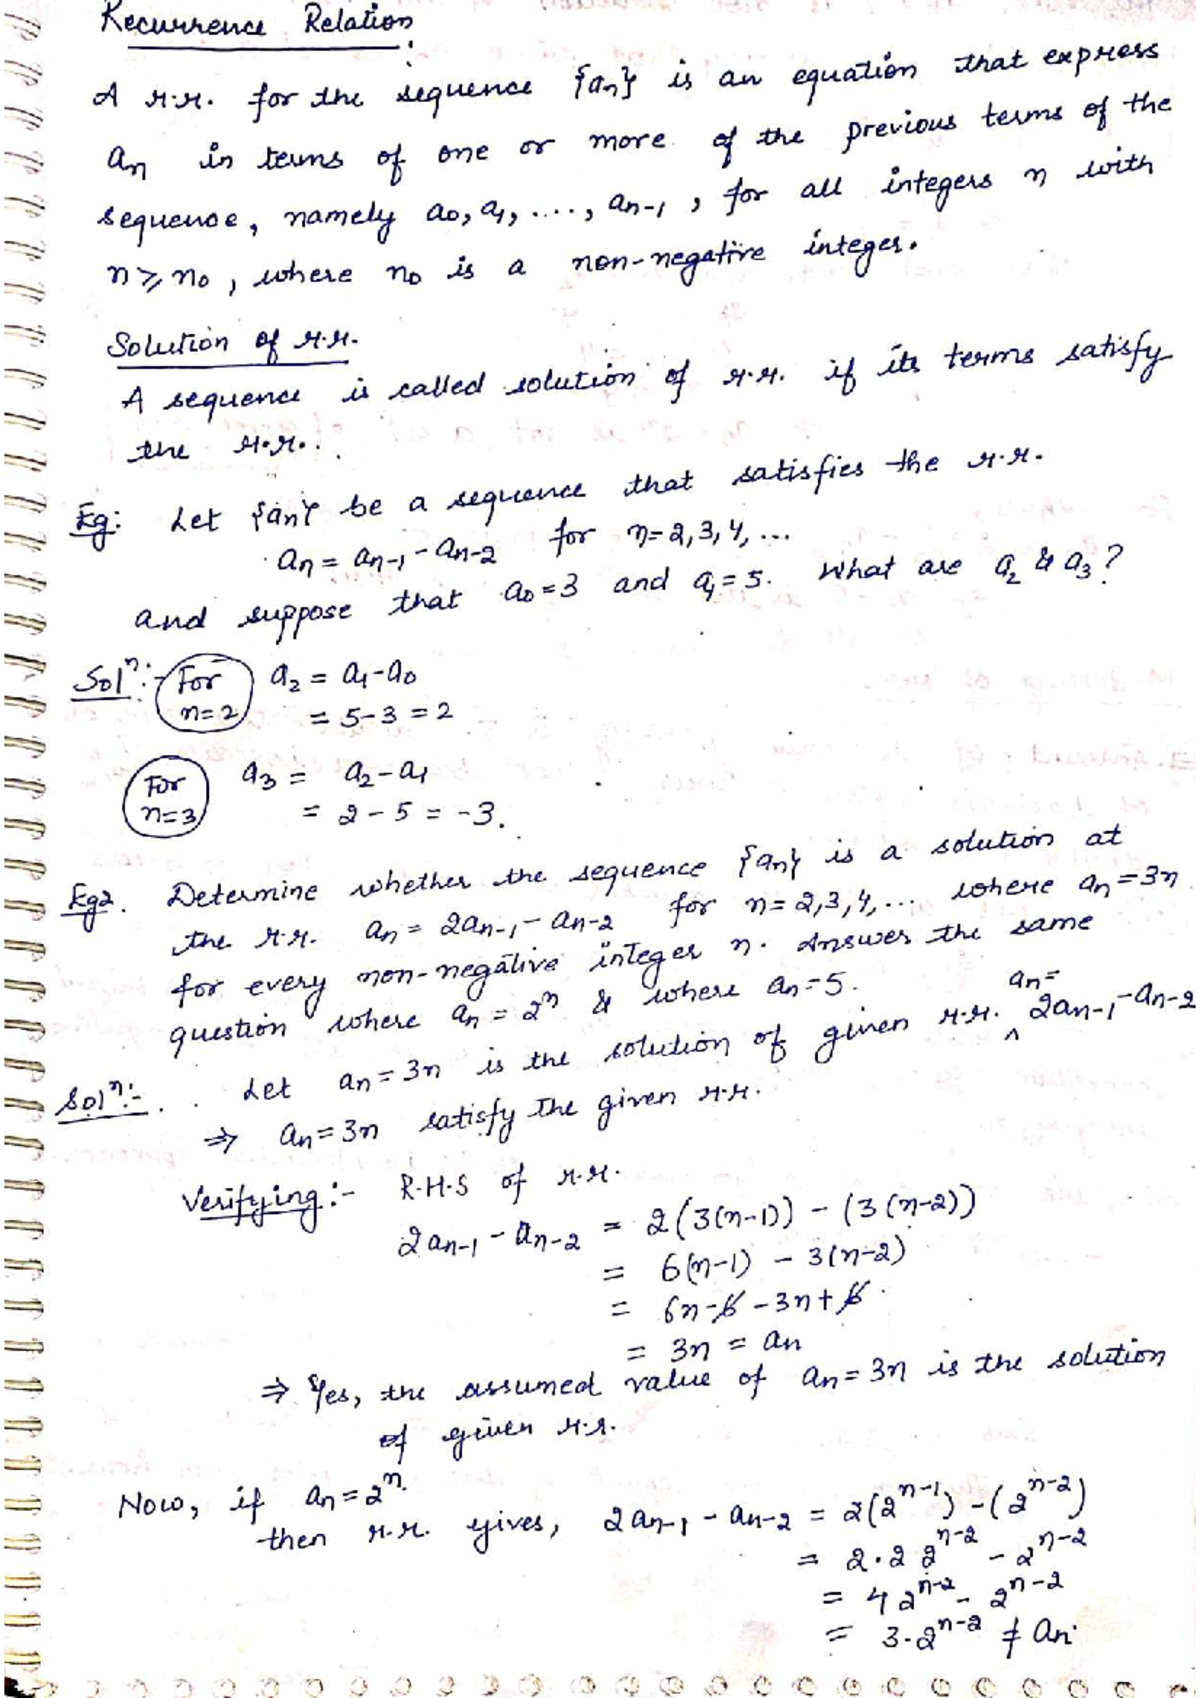 Recurrence Relation:
A r.r. for the sequence {an} is an equation that express
an in terms of one or more of the previous terms of the
sequence, namely a0, a1, ...., an-1, for all integers n with
n ≥ n0, where n0 is a non-negative integer.
Solution of r.r.
A sequence is called solution of r.r. if its terms satisfy
the r.r.
Eg: Let {an} be a sequence that satisfies the r.r.
an = an-1 - an-2 for n=2,3,4,...
and suppose that a0=3 and a1=5. What are a2 & a3?
Solⁿ:- For n=2 a2 = a1-a0
= 5-3 = 2
For n=3 a3 = a2-a1
= 2-5 = -3.
Eg2. Determine whether the sequence {an} is a solution at
the r.r. an = 2an-1 - an-2 for n=2,3,4,... where an=3n
for every non-negative integer n. Answer the same
question where an = 2ⁿ & where an=5.
Solⁿ:- Let an=3n is the solution of given r.r. an= 2an-1-an-2
⇒ an=3n satisfy the given r.r.
Verifying:- R.H.S of r.r.
2an-1 - an-2 = 2(3(n-1)) - (3(n-2))
= 6(n-1) - 3(n-2)
= 6n-6-3n+6
= 3n = an
⇒ Yes, the assumed value of an=3n is the solution
of given r.r.
Now, if an=2ⁿ.
then r.r. gives, 2an-1 - an-2 = 2(2ⁿ⁻¹) - (2ⁿ⁻²)
= 2.2 2ⁿ⁻² - 2ⁿ⁻²
= 4 2ⁿ⁻² - 2ⁿ⁻²
= 3.2ⁿ⁻² ≠ an.